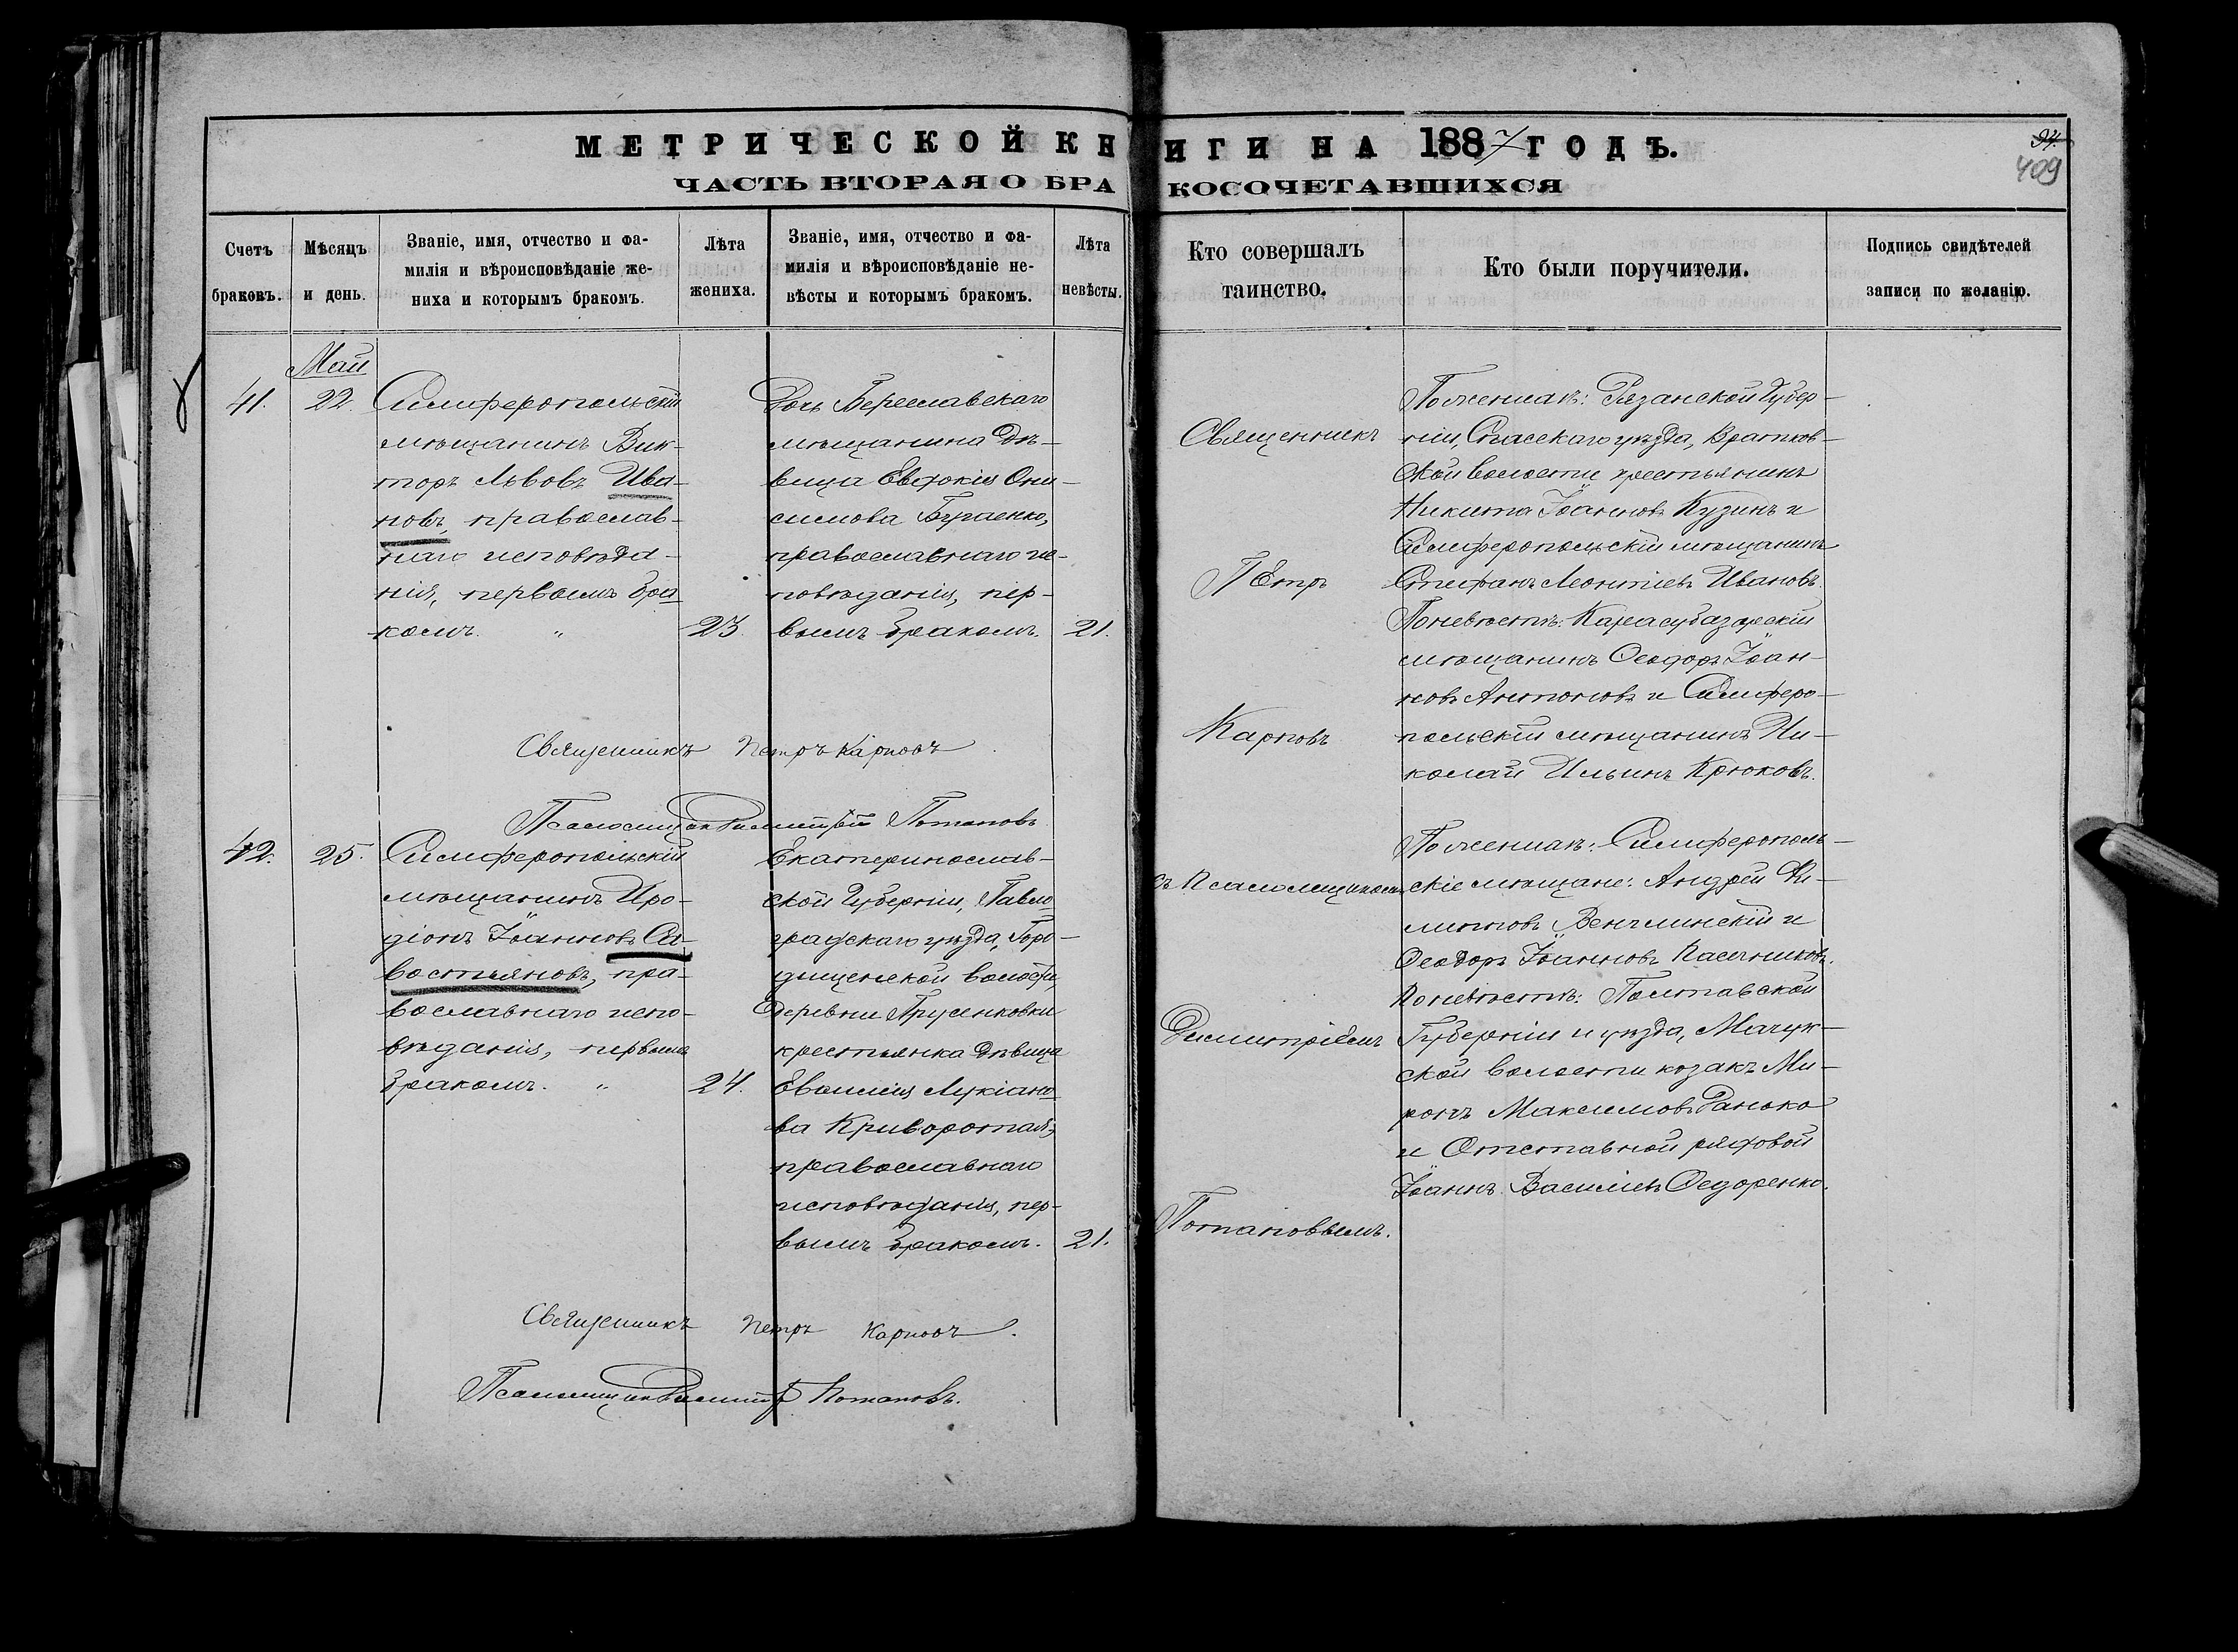 МЕТРИЧЕСКОЙ КНИГИ НА 1887 ГОДЪ.
ЧАСТЬ ВТОРАЯ О БРАКОСОЧЕТАВШИХСЯ
94.
409
Счетъ браковъ.
Мѣсяцъ и день.
Званіе, имя, отчество и фа-
милія и вѣроисповѣданіе же-
ниха и которымъ бракомъ.
Лѣта
жениха.
Званіе, имя, отчество и фа-
милія и вѣроисповѣданіе не-
вѣсты и которымъ бракомъ.
Лѣта
невѣсты.
Кто совершалъ
таинство.
Кто были поручители.
Подпись свидѣтелей
записи по желанію.
Май
41.
22.
Симферопольскій
мѣщанинъ Вик-
торъ Львовъ Ива-
новъ, православ-
наго исповѣда-
нія, первымъ бра-
комъ. „
23.
Дочь Береславскаго
мѣщанина дѣ-
вица Евдокія Они-
симова
православнаго ис-
повѣданія, пер-
вымъ бракомъ.
21.
Священникъ
Петръ
Карповъ
По женихѣ: Рязанской Губер-
ніи, Спасскаго уѣзда,
ской волости крестьянинъ
Никита Іоанновъ Кузинъ и
Симферопольскій мѣщанинъ
Стефанъ Леонтіевъ Ивановъ.
По невѣстѣ: Карасубазарскій
мѣщанинъ Ѳеодоръ Іоан-
новъ Антоновъ и Симферо-
польскій мѣщанинъ Ни-
колай Ильинъ Крюковъ.
Священникъ Петръ Карповъ
Псаломщикъ Димитрій Потаповъ
42.
25.
Симферопольскій
мѣщанинъ Иро-
діонъ Іоанновъ Са-
востьяновъ, пра-
вославнаго испо-
вѣданія, первымъ
бракомъ. „
24.
Екатеринослав-
ской Губерніи, Павло-
градскаго уѣзда, Горо-
дищенской волости,
деревни
крестьянка дѣвица
Евфимія Лукіано-
ва Криворотая,
православнаго
исповѣданія, пер-
вымъ бракомъ.
21.
съ Псаломщикомъ
Димитріемъ
Потаповымъ.
По женихѣ: Симферополь-
скіе мѣщане: Андрей Фи-
липповъ и
Ѳеодоръ Іоанновъ Пасечниковъ.
По невѣстѣ: Полтавской
Губерніи и уѣзда, Мачух-
ской волости козакъ Ми-
ронъ Максимовъ
и Отставной рядовой
Іоаннъ Василіевъ Ѳедоренко.
Священникъ Петръ Карповъ.
Псаломщикъ Димитрій Потаповъ.